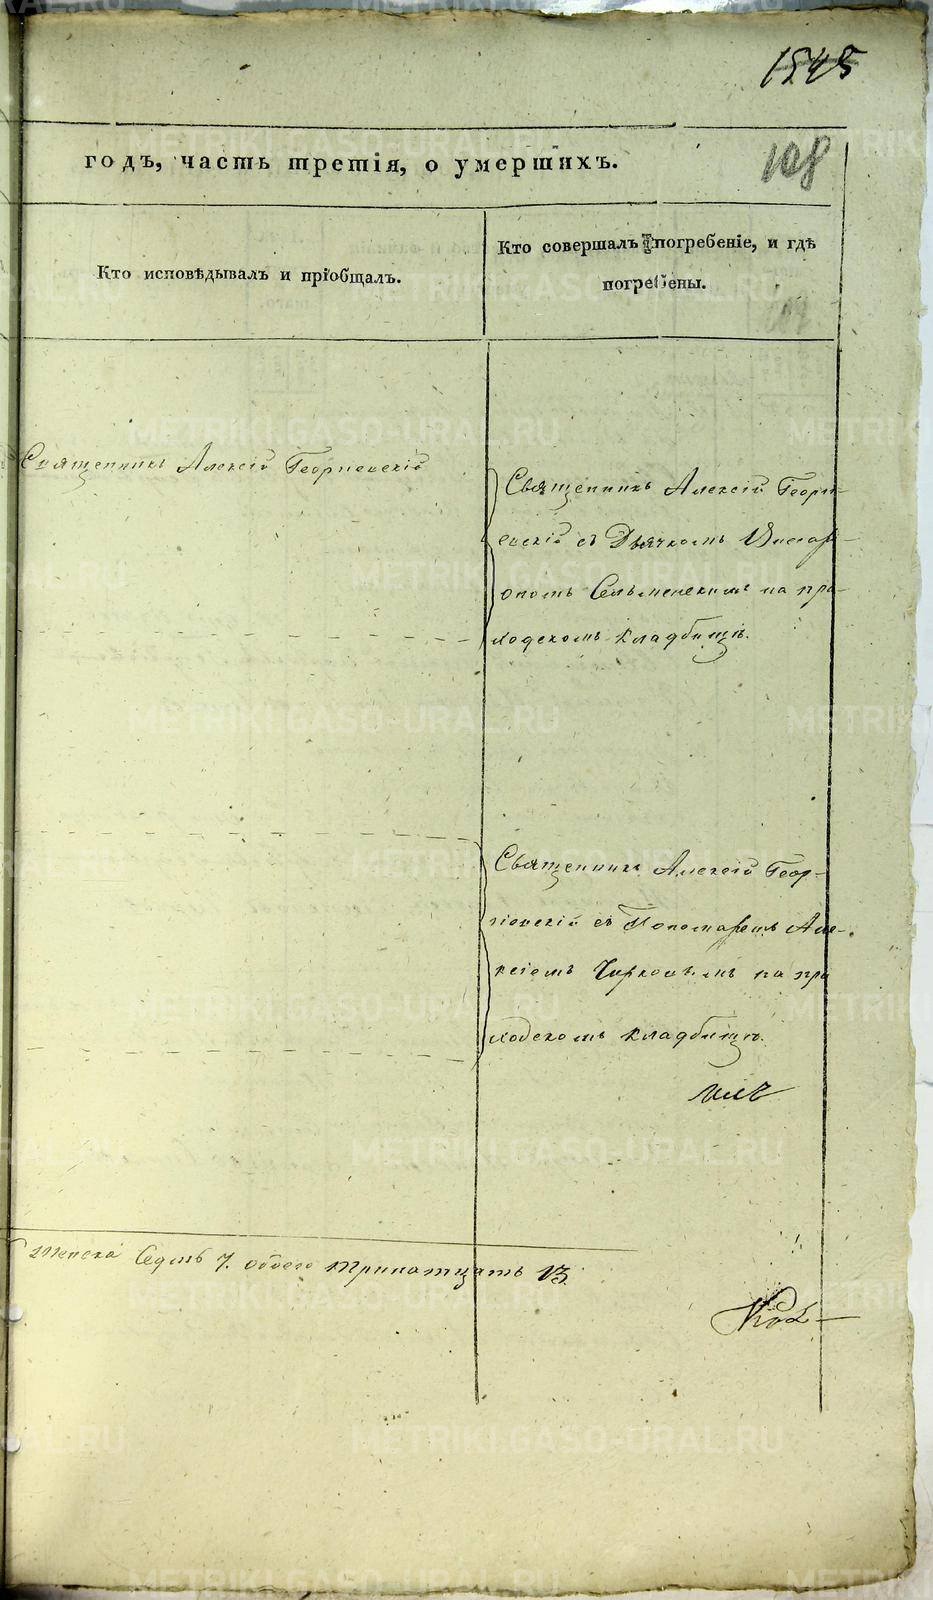 1545
годъ, часть третія, о умершихъ.
108
Кто исповѣдывалъ и пріобщалъ.
Кто совершалъ погребеніе, и гдѣ
погребены.
Священникъ Алексій Георгіевскій
Священникъ Алексій Георгі-
евскій съ Дьячкомъ
на при-
ходскомъ кладбищѣ.
Священникъ Алексій Геор-
гіевскій съ Пономаремъ Але-
ксіемъ Чирковымъ на при
ходскомъ кладбищѣ.
женска Седмь 7. обоего тринатцать 13
METRIKI.GASO-URAL.RU